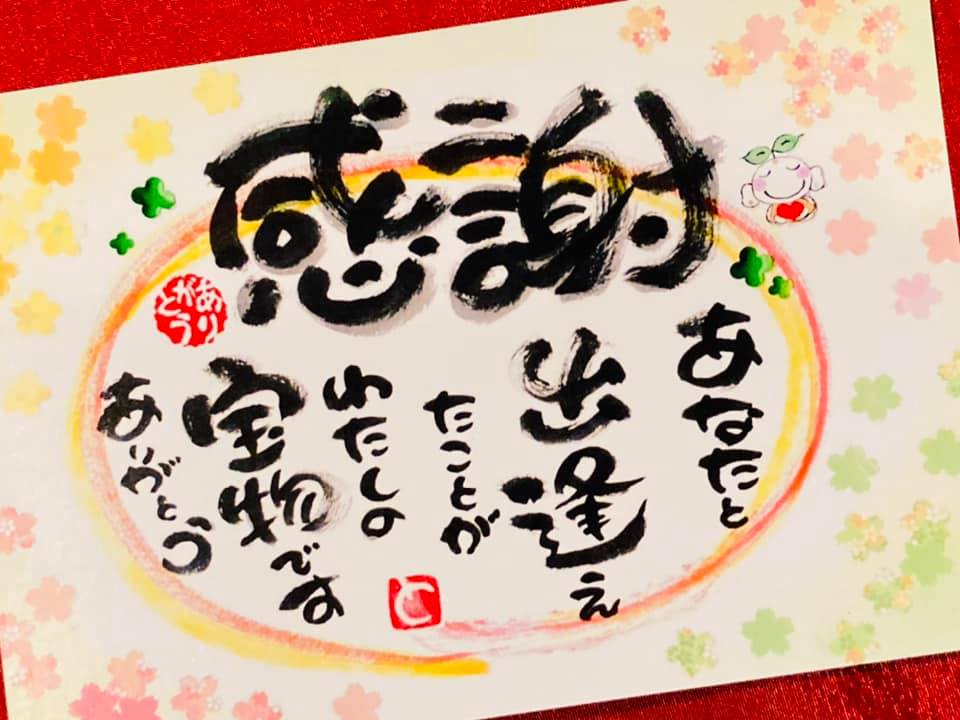 感謝
あなたと
出逢え
たことが
わたしの
宝物です
ありがとう
ありがとう
と